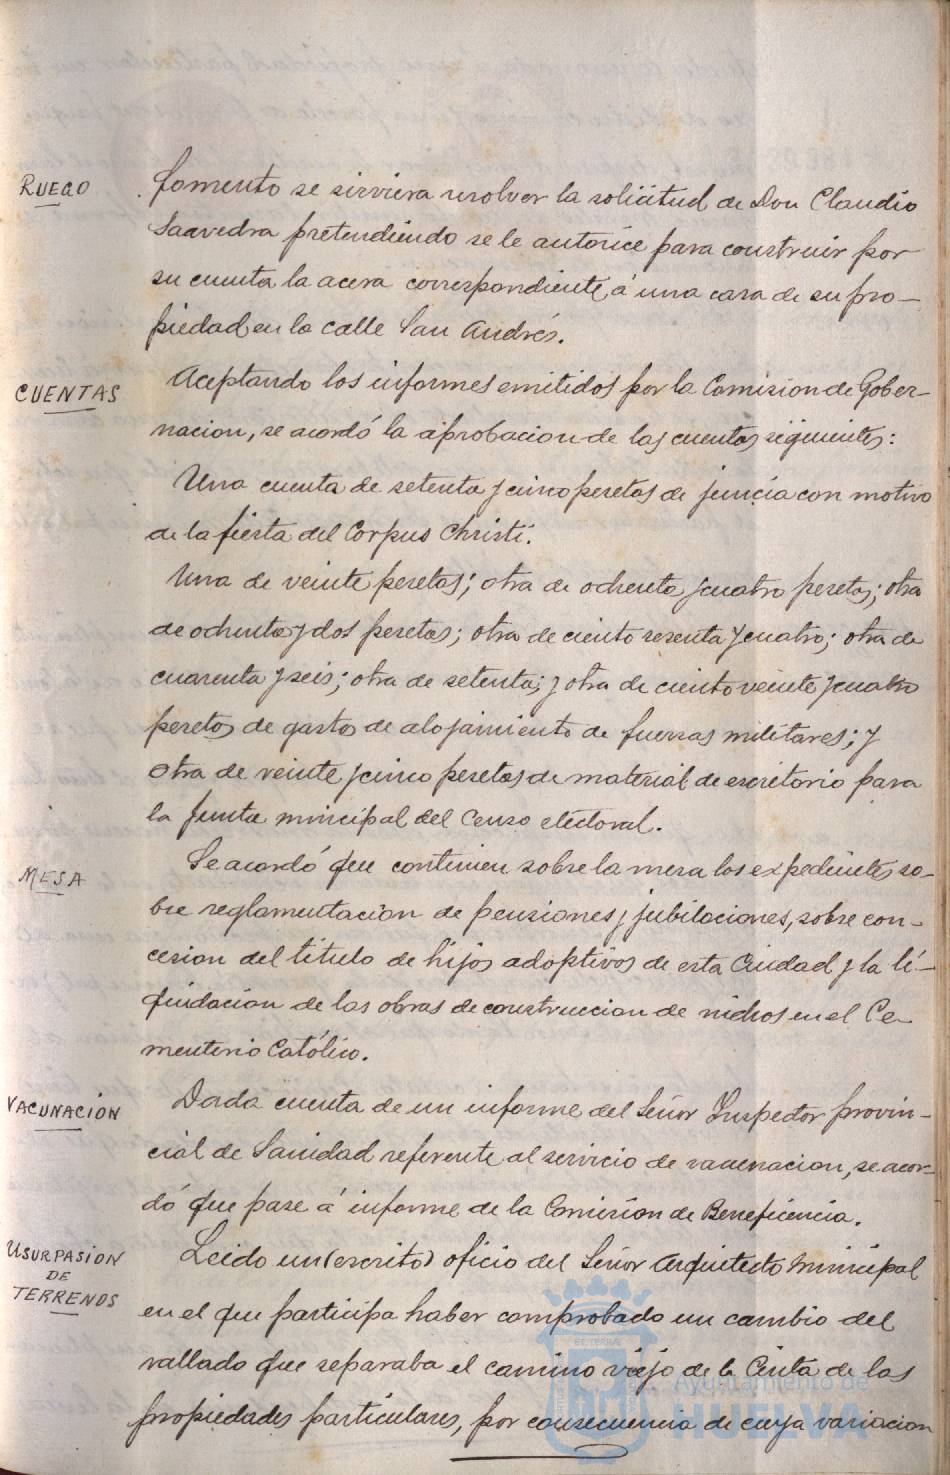 RUEGO
fomento se sirviera resolver la solicitud de Don Claudio
Saavedra pretendiendo se le autorice para construir por
su cuenta la acera correspondiente á una casa de su pro-
piedad en la calle San Andrés.
CUENTAS
Aceptando los informes emitidos por la Comision de Gober-
nacion, se acordó la aprobacion de las cuentas siguientes:
Una cuenta de setenta y cinco pesetas de juncia con motivo
de la fiesta del Corpus Christi.
Una de veinte pesetas; otra de ochenta y cuatro pesetas; otra
de ochenta y dos pesetas; otra de ciento sesenta y cuatro; otra de
cuarenta y seis; otra de setenta; y otra de ciento veinte y cuatro
pesetas de gastos de alojamiento de fuerzas militares; y
otra de veinte y cinco pesetas de material de escritorio para
la Junta municipal del Censo electoral.
MESA
Se acordó que continuen sobre la mesa los expedientes so-
bre reglamentacion de pensiones y jubilaciones, sobre con-
cesion del titulo de hijos adoptivos de esta Ciudad y la li-
quidacion de las obras de construccion de nichos en el Ce-
menterio Católico.
VACUNACIÓN
Dada cuenta de un informe del Señor Inspector provin-
cial de Sanidad referente al servicio de vacunacion, se acor-
dó que pase á informe de la Comisión de Beneficencia.
USURPASION
DE
TERRENOS
Leido un (escrito) oficio del Señor Arquitecto Municipal
en el que participa haber comprobado un cambio del
vallado que separaba el camino viejo de la Cinta de las
propiedades particulares, por consecuencia de cuya variacion
Ayuntamiento de
HUELVA